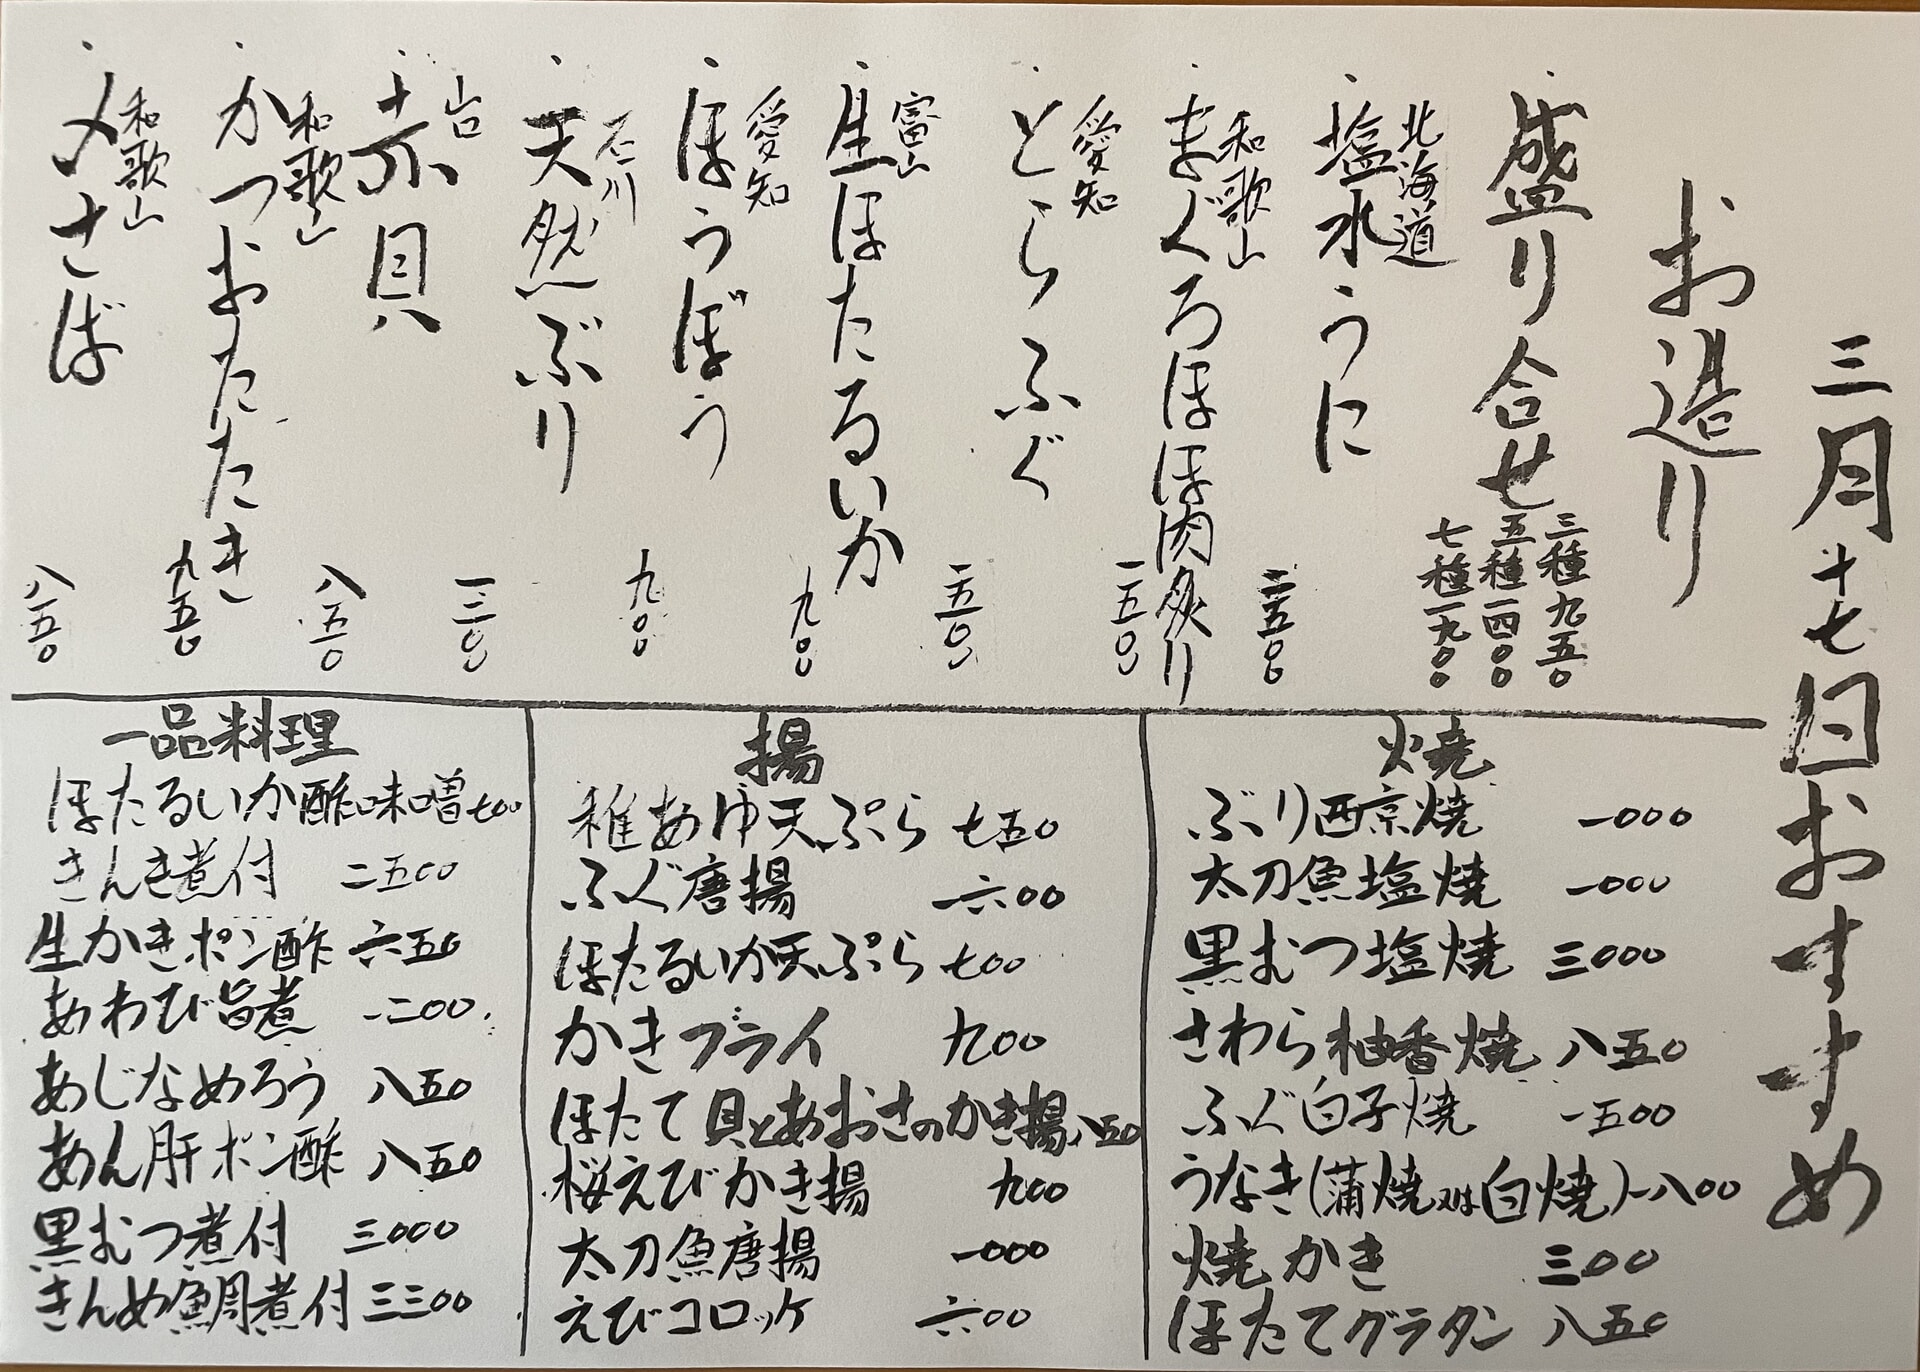 三月十七日おすすめ
お造り
盛り合せ
三種九五〇
五種一四〇〇
七種一九〇〇
北海道
塩水うに
二五〇〇
和歌山
まぐろほほ肉炙り
一五〇〇
愛知
とらふぐ
一五〇〇
富山
生ほたるいか
九〇〇
愛知
ほうぼう
九〇〇
石川
天然ぶり
一三〇〇
赤貝
八五〇
和歌山
かつおたたき
九五〇
和歌山
〆さば
八五〇
焼
ぶり西京焼 一000
太刀魚塩焼 一000
黒むつ塩焼 三000
さわら柚香焼 八五0
ふぐ白子焼 一五00
うなき(蒲焼又は白焼)一八00
焼かき 三00
ほたてグラタン 八五0
揚
稚あゆ天ぷら 七五0
ふぐ唐揚 一六00
ほたるいか天ぷら 七00
かきフライ 九00
ほたて貝とあおさのかき揚 八五0
桜えびかき揚 九00
太刀魚唐揚 一000
えびコロッケ 六00
一品料理
ほたるいか酢味噌 七00
きんき煮付 二五00
生かきポン酢 六五0
あわび旨煮 一二00
あじなめろう 八五0
あん肝ポン酢 八五0
黒むつ煮付 三000
きんめ鯛煮付 三三00